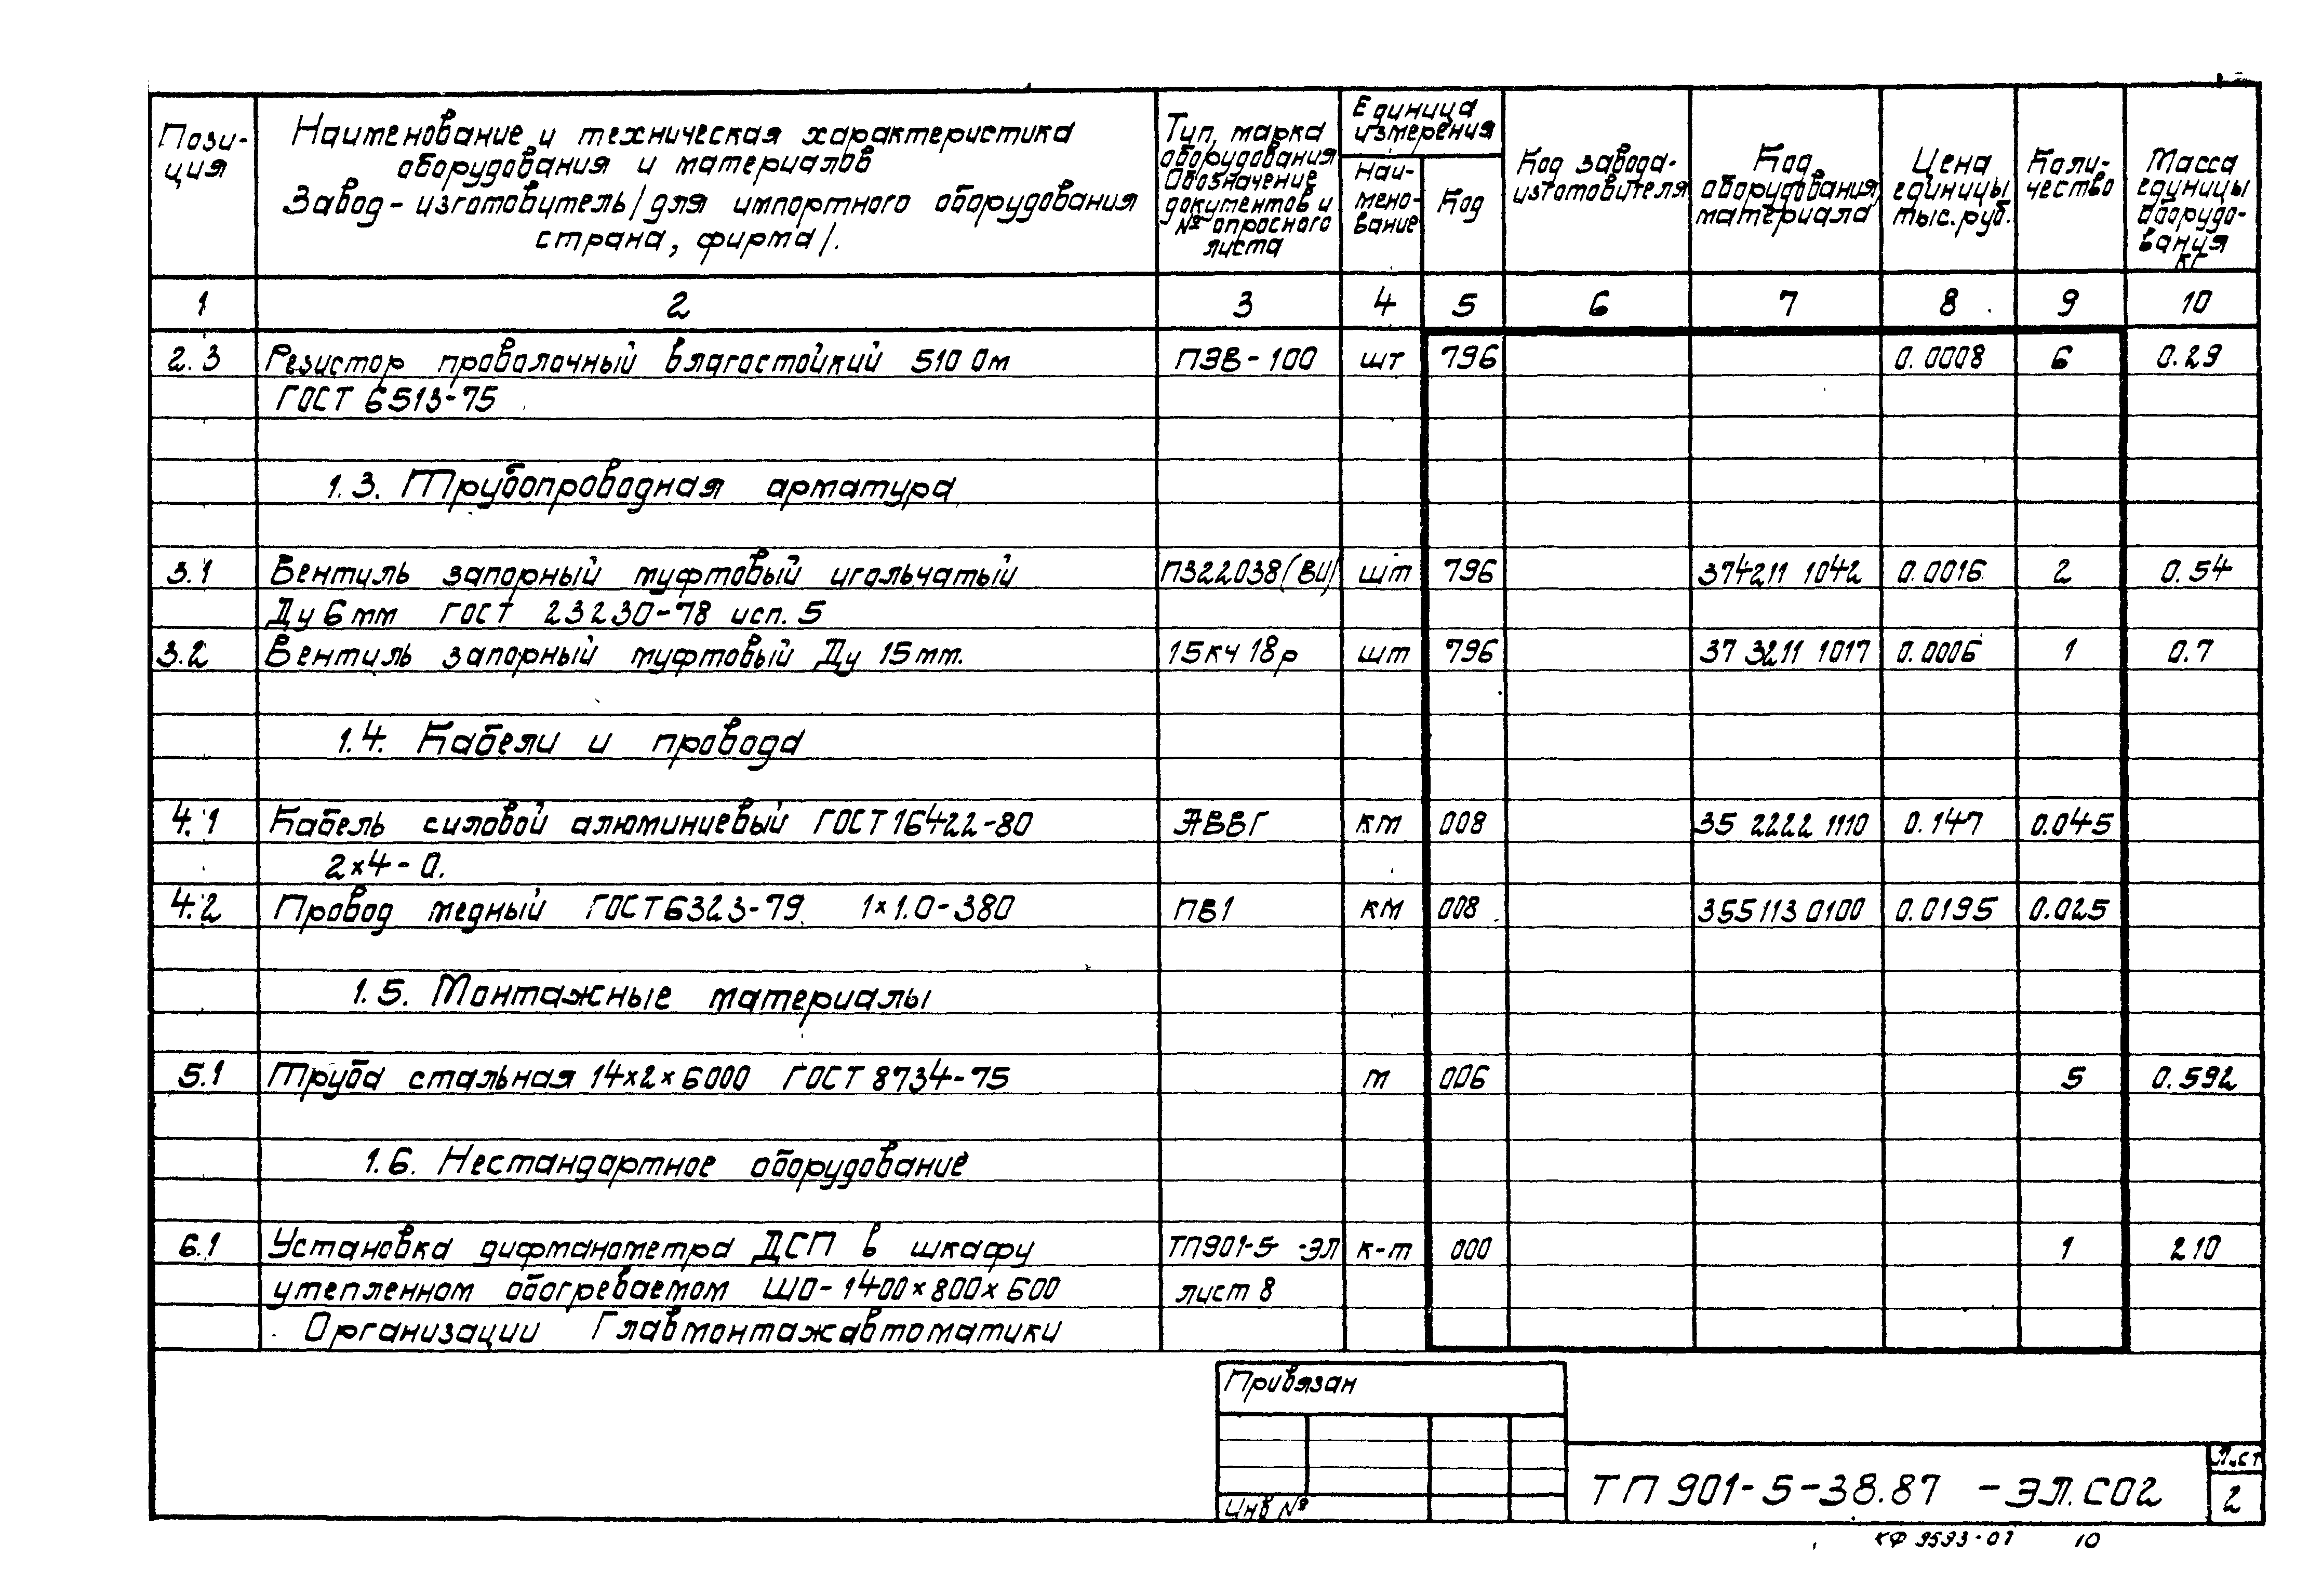 Пози-
ция
Наименование и техническая характеристика
оборудования и материалов
Завод-изготовитель/для импортного оборудования
страна, фирма/.
Тип, марка
оборудования
Обозначение
документов и
№ опросного
листа
Единица
измерения
Наи-
мено-
вание
Код
Код завода-
изготовителя
Код
оборудования,
материала
Цена
единицы
тыс.руб.
Коли-
чество
Масса
единицы
оборудо-
вания
кг
1 2 3 4 5 6 7 8 9 10
2.3 Резистор проволочный влагостойкий 510 Ом ПЭВ-100 шт 796 0.0008 6 0.29
ГОСТ 6513-75
1.3. Трубопроводная арматура
3.1 Вентиль запорный муфтовый игольчатый ПЗ22038(ВИ) шт 796 374211 1042 0.0016 2 0.54
Ду 6 мм ГОСТ 23230-78 исп. 5
3.2 Вентиль запорный муфтовый Ду 15 мм. 15кч 18р шт 796 37 3211 1017 0.0006 1 0.7
1.4. Кабели и провода
4.1 Кабель силовой алюминиевый ГОСТ 16422-80 АВВГ км 008 35 2222 1110 0.147 0.045
2×4-0.
4.2 Провод медный ГОСТ 6323-79 1×1.0-380 ПВ1 км 008 355113 0100 0.0195 0.025
1.5. Монтажные материалы
5.1 Труба стальная 14×2×6000 ГОСТ 8734-75 м 006 5 0.592
1.6. Нестандартное оборудование
6.1 Установка дифманометра ДСП в шкафу ТП901-5- -ЭЛ к-т 000 1 210
утепленном обогреваемом ШО-1400×800×600 лист 8
Организации Главмонтажавтоматики
Привязан
Инв №
ТП 901-5-38.87 -ЭЛ.СО2
Лист
2
КФ 9593-07 10